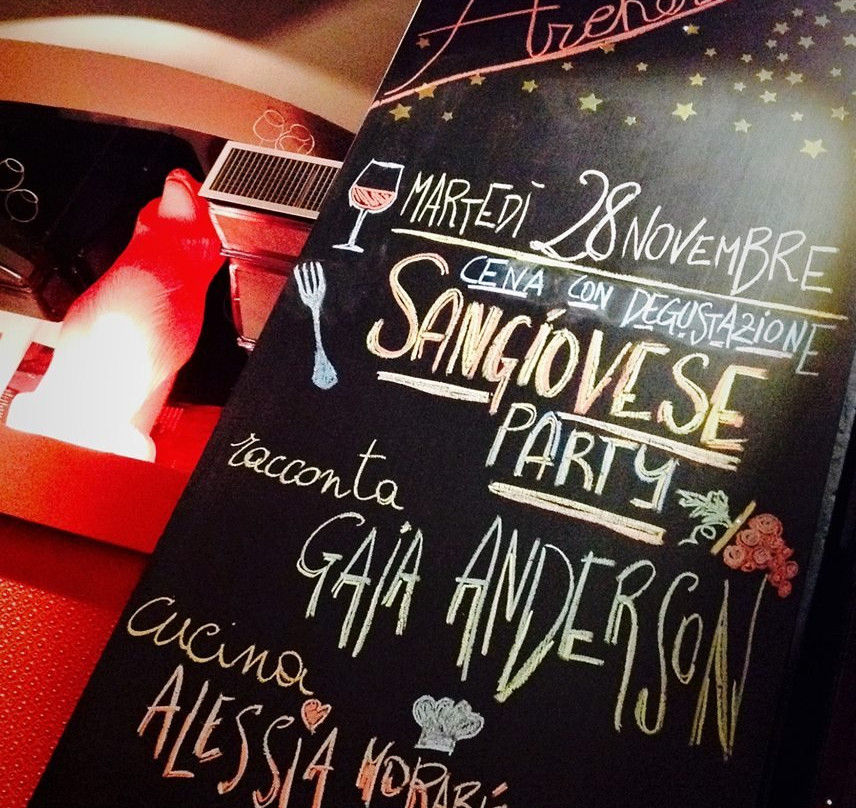 MARTEDÌ 28 NOVEMBRE
CENA CON DEGUSTAZIONE
SANGIOVESE
PARTY
racconta
GAIA ANDERSON
cucina
ALESSIA